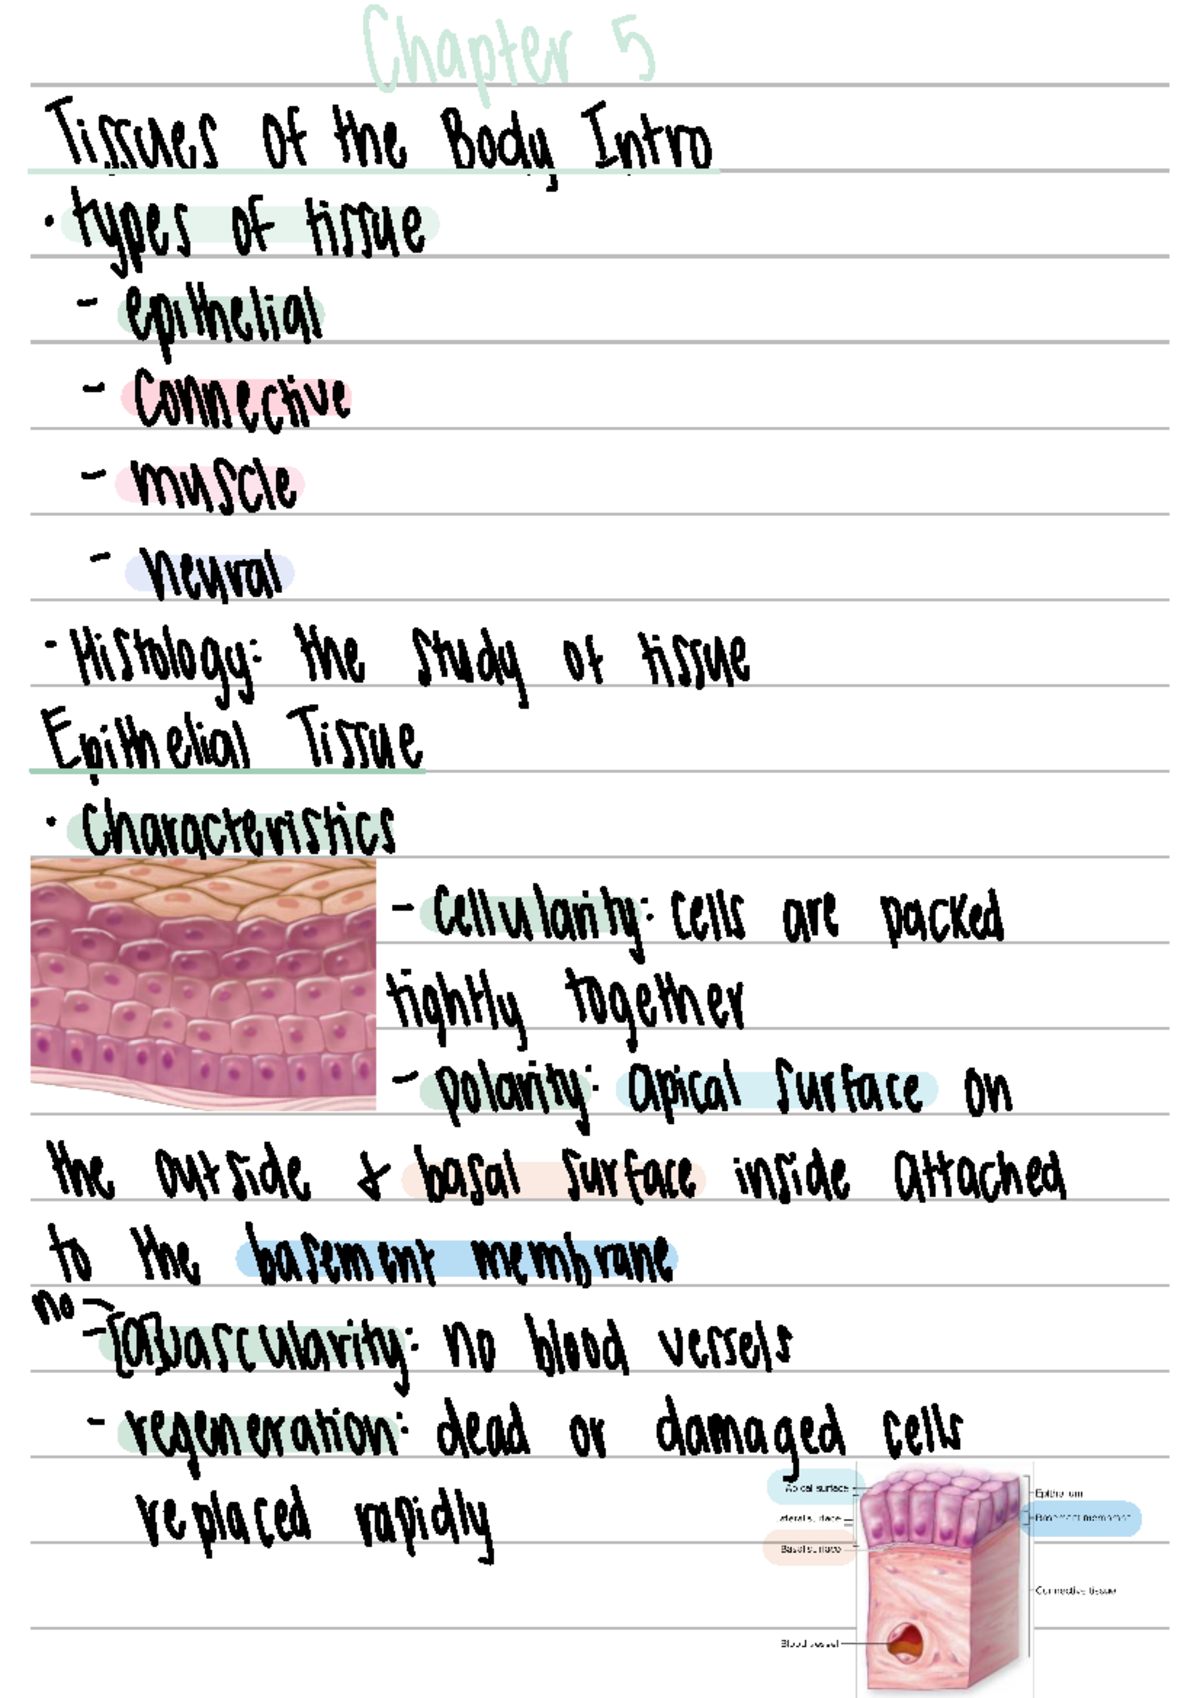 Chapter 5
Tissues of the Body Intro
· types of tissue
- epithelial
- Connective
- muscle
- neural
· Histology: the study of tissue
Epithelial Tissue
· Characteristics
- cellularity: cells are packed
tightly together
- polarity: apical surface on
the outside & basal surface inside attached
to the basement membrane
no
- [a]vascularity: no blood vessels
- regeneration: dead or damaged cells
replaced rapidly
Apical surface
Epithelium
Lateral surface
Basement membrane
Basal surface
Connective tissue
Blood vessel